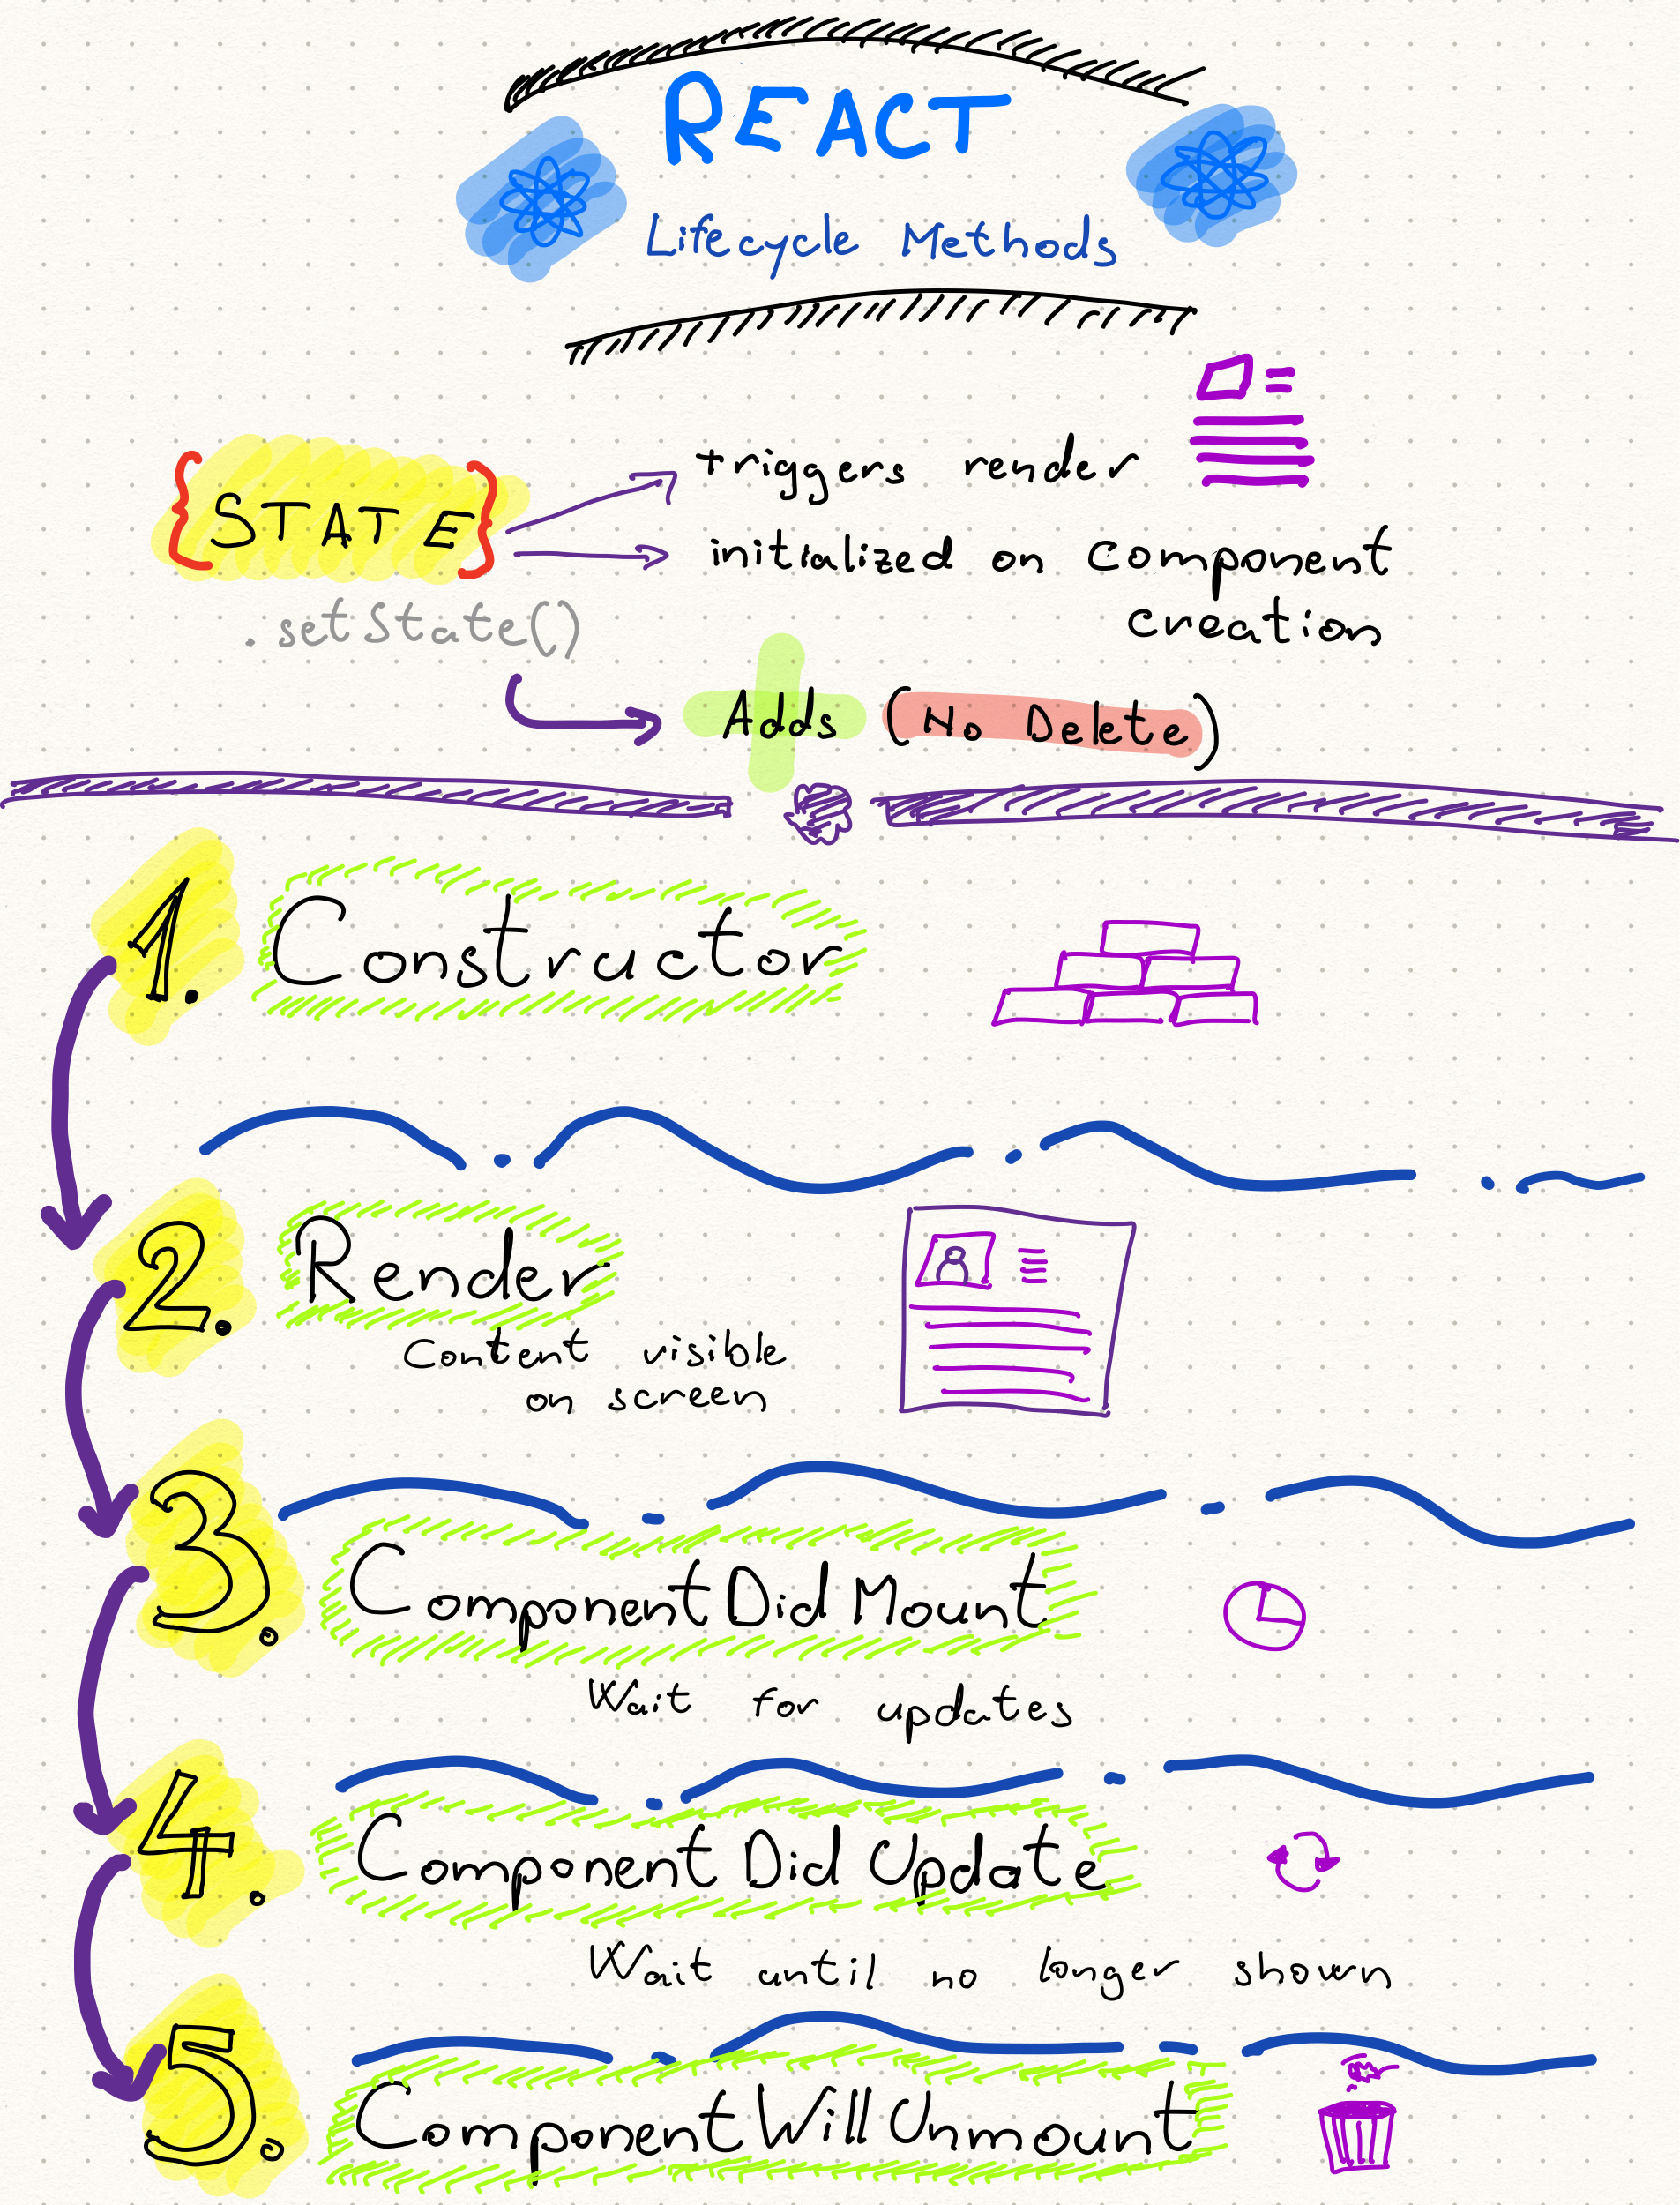 REACT
Lifecycle Methods
{STATE}
triggers render
initialized on component
creation
.setState()
Adds (No Delete)
1. Constructor
2. Render
Content visible
on screen
3. ComponentDidMount
Wait for updates
4. ComponentDidUpdate
Wait until no longer shown
5. ComponentWillUnmount